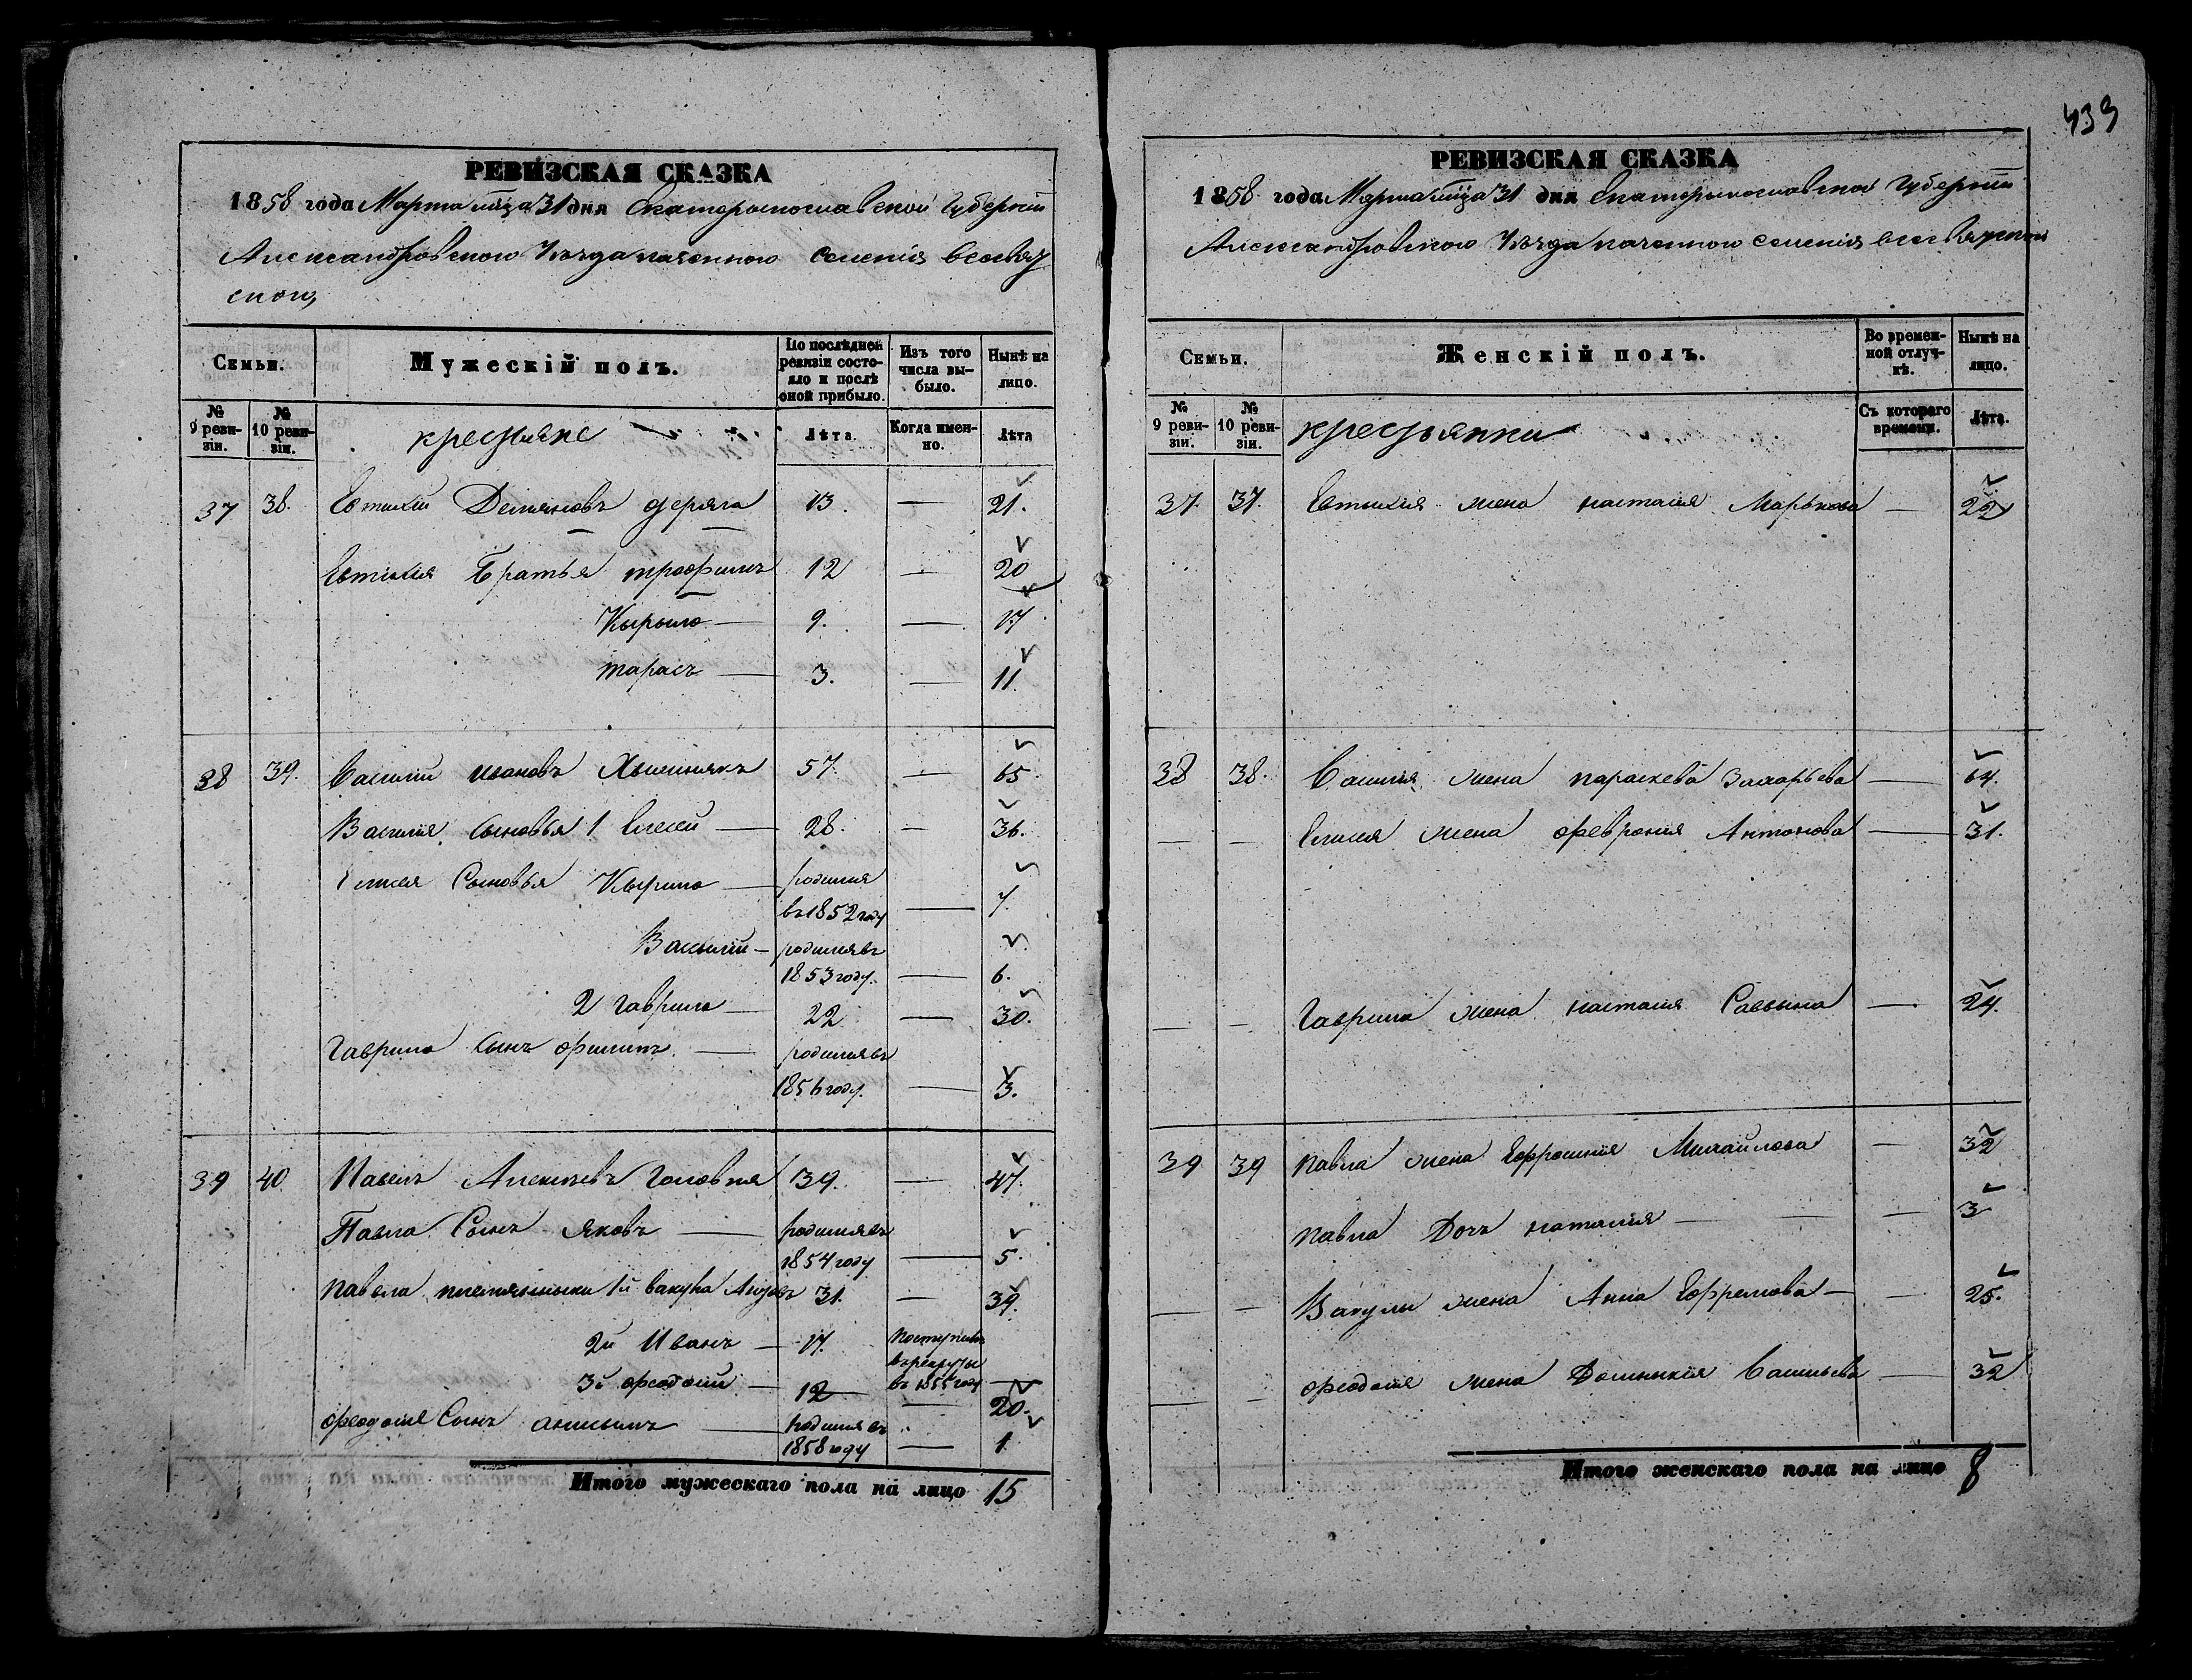 433
РЕВИЗСКАЯ СКАЗКА
1858 года Марта мца 31 дня Екатеринославской Губернии
Александровского Уезда казенного селения всесвят
ского
Семьи.
Мужескій полъ.
По послѣдней ревизіи состояло и послѣ оной прибыло.
Изъ того числа выбыло.
Нынѣ на лицо.
№ 9 ревизіи.
№ 10 ревизіи.
крестьяне
Лѣта.
Когда именно.
Лѣта
37 38. Евтихій Демяновъ деряга 13. — 21.
Евтихия Братья трофимъ 12 — 20
Кырыло — 9. — 17
тарасъ — 3. — 11.
38 39. Василий ивановъ Хыжнякъ 57. — 65.
Василия Сыновья 1 Елисей — 28. — 36.
Елисея Сыновья Кырило — родился
въ 1852 году — 7.
Васылий — родился въ
1853 году. — 6.
2 гаврило — 22 — 30.
Гаврила Сынъ филипъ. — родился въ
1856 году. — 3.
39 40 Павелъ Алексеевъ Головня 39. — 47.
Павла Сынъ яковъ — родился въ
1854 году — 5.
павела племянныки 1й вакула 31. — 39.
2й Иванъ — 17. поступилъ
въ рекруты
въ 1855 году —
3й феодосий — 12 — 20.
феодосия Сынъ анисымъ — родился въ
1858 году — 1
Итого мужескаго пола на лицо 15
РЕВИЗСКАЯ СКАЗКА
1858 года Марта мца 31 дня Екатериносlавской Губернии
Александровского Уезда казенного селения всесвятского
Семьи.
Женскій полъ.
Во временной отлучкѣ.
Нынѣ на лицо.
№ 9 ревизіи.
№ 10 ревизіи.
крестьянки
Съ котораго времени.
Лѣта.
37. 37. Евтихия жена настасия Маркова — 22
38 38. Василия жена параскева Захарьева — 64.
— — Елисея жена феврония Антонова — 31.
— — Гаврила жена настасия Саввина — 24.
39 39 павла жена Ефросиния Михайлова — 32
павла Дочъ наталия — — — 3
— — Вакулы жена Анна Ефремова — — 25.
— — феодосия жена Домныкия Васильева — 32
Итого женскаго пола на лицо 8